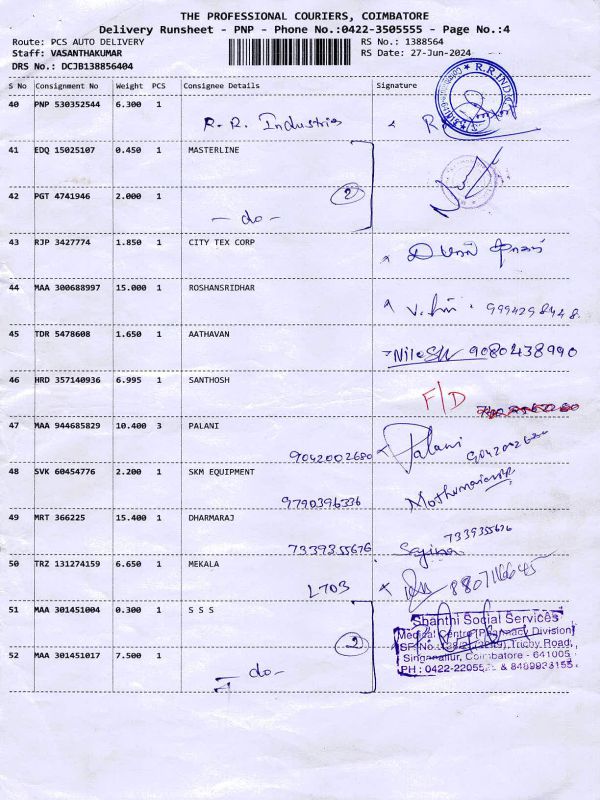 THE PROFESSIONAL COURIERS, COIMBATORE
Delivery Runsheet - PNP - Phone No.:0422-3505555 - Page No.:4
Route: PCS AUTO DELIVERY
RS No.: 1388564
Staff: VASANTHAKUMAR
RS Date: 27-Jun-2024
DRS No.: DCJB138856404
S No Consignment No Weight PCS Consignee Details Signature
40 PNP 530352544 6.300 1
R.R. Industries
R.R. INDU
41 EDQ 15025107 0.450 1 MASTERLINE
2
42 PGT 4741946 2.000 1
- do -
43 RJP 3427774 1.850 1 CITY TEX CORP
44 MAA 300688997 15.000 1 ROSHANSRIDHAR
9994298448
45 TDR 5478608 1.650 1 AATHAVAN
9080438990
46 HRD 357140936 6.995 1 SANTHOSH
F/D
47 MAA 944685829 10.400 3 PALANI
9042002680
Palani
48 SVK 60454776 2.200 1 SKM EQUIPMENT
9790396336
49 MRT 366225 15.400 1 DHARMARAJ
7339355676
7339355676
50 TRZ 131274159 6.650 1 MEKALA
L703
51 MAA 301451004 0.300 1 S S S
2
Shanthi Social Services
Medical Centre (Pharmacy Division)
Trichy Road,
Singanallur, Coimbatore - 641005
52 MAA 301451017 7.500 1
- do -
PH : 0422-2205 & 8489933155